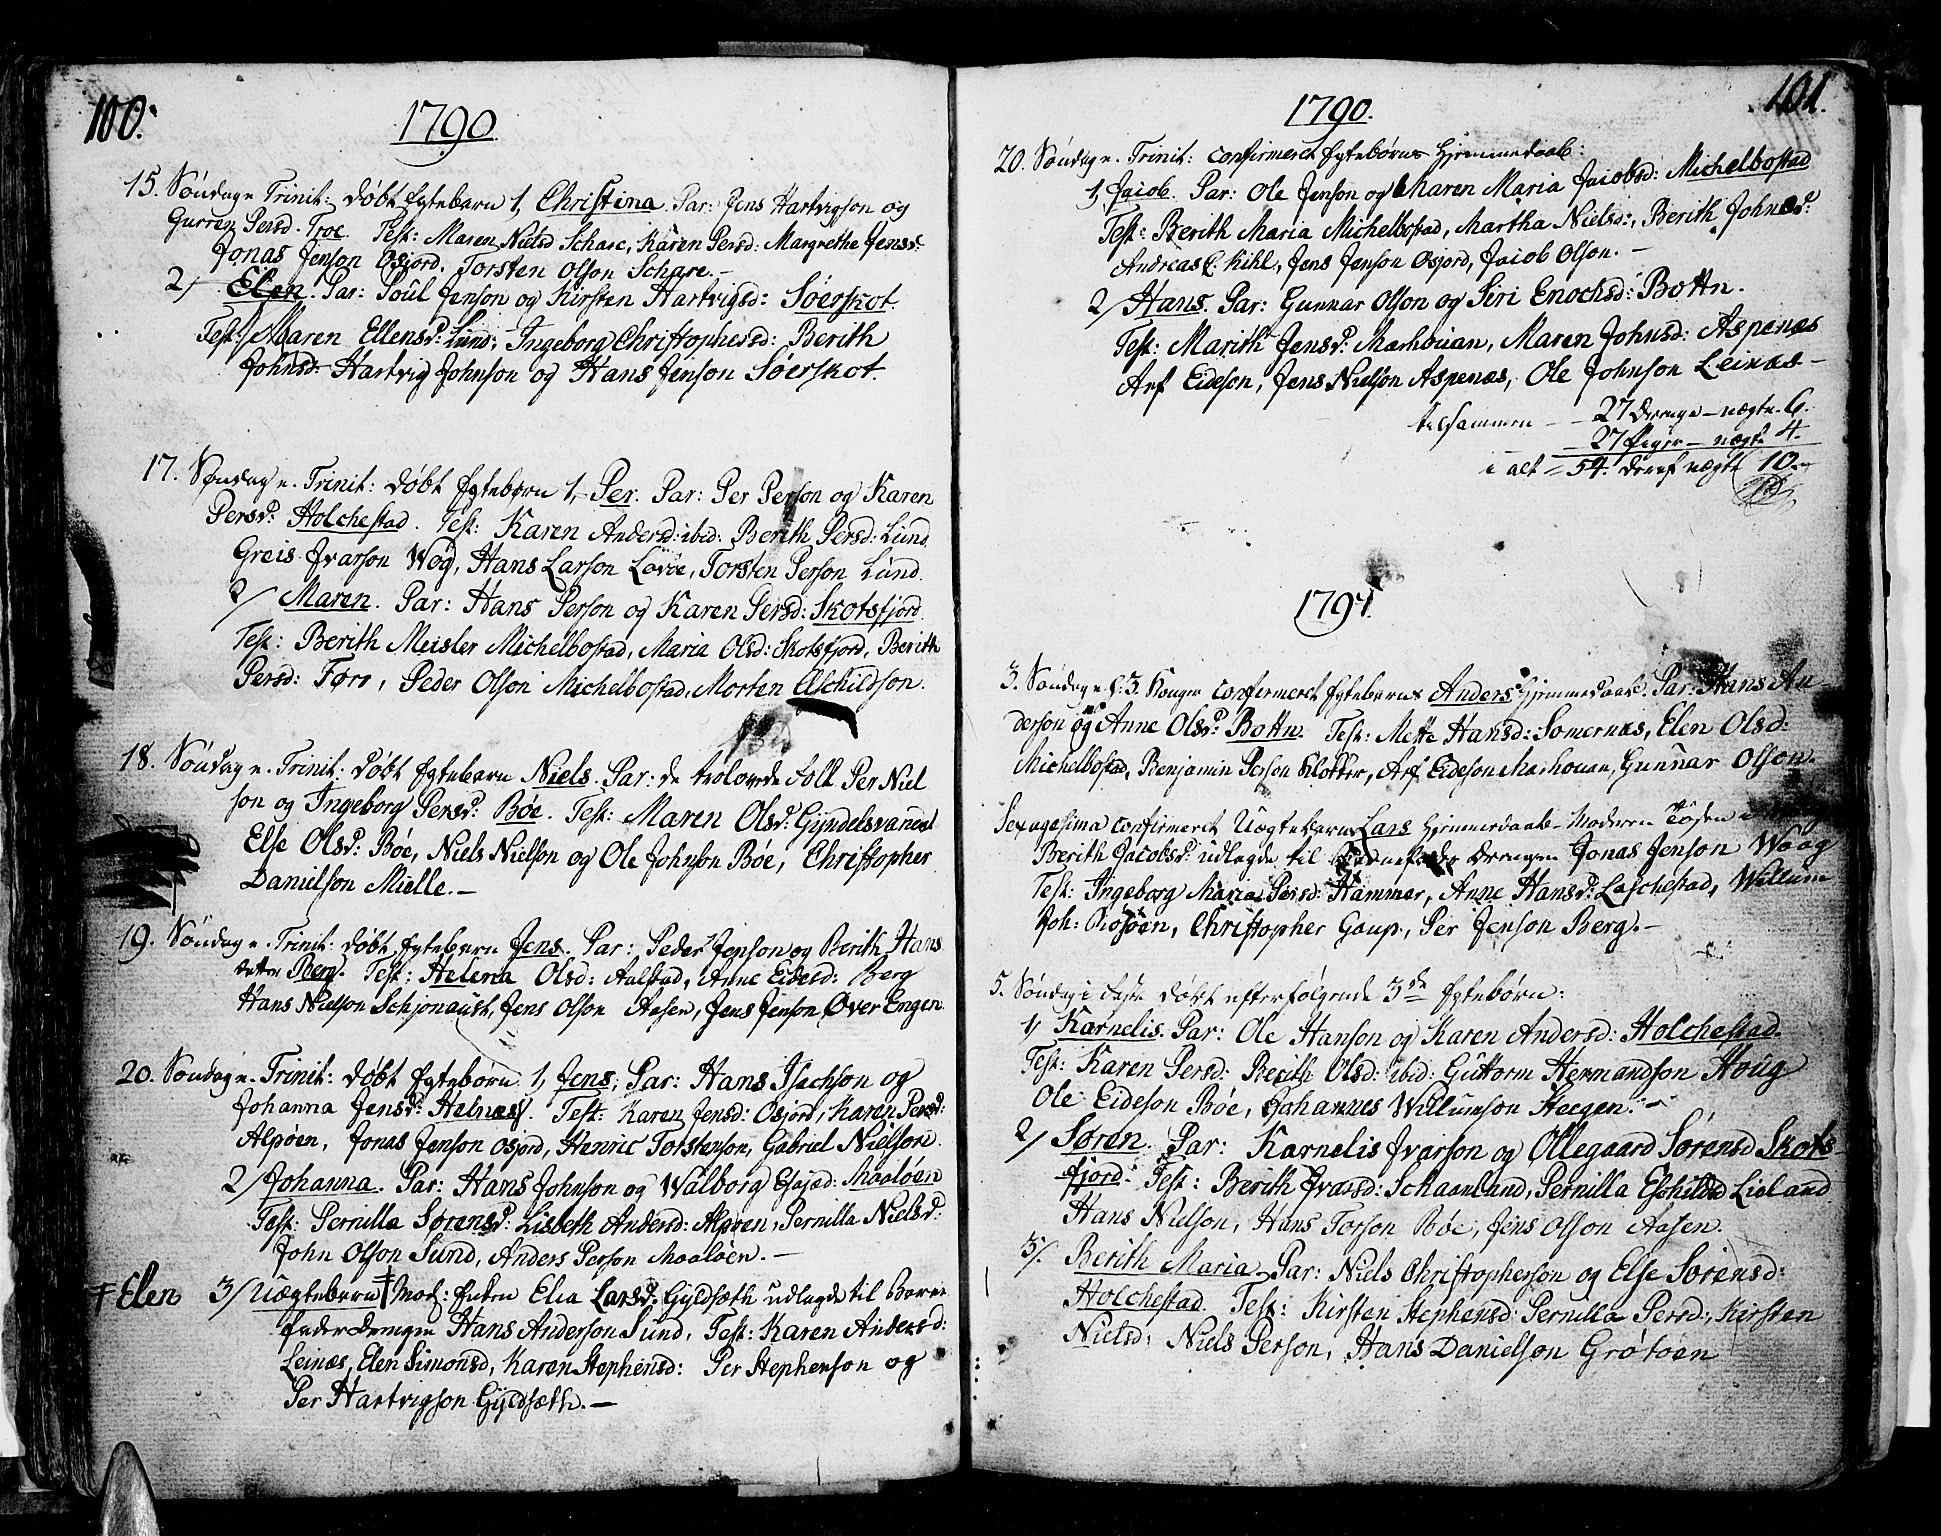 100.
1790
15. Søndag e. Trinit: døbt Egtebarn 1, Christina. Par: Jens Hartvigson og
Gurren Persd. Troe. Test: Maren Nielsd Schare, Karen Persd: Margrethe Jensd:
Jonas Jenson Osjord. Torsten Olson Schare. –
2/ Elen. Par: Poul Jenson og Kirsten Hartvigsd: Søerskot.
Test: Maren Ellensd: Lund: Ingeborg Christophersd: Berith
Johnsd. Hartvig Johnson og Hans Jenson Søerskot.
17. Søndag e. Trinit: døbt Egtebørn 1, Per. Par: Per Person og Karen
Persd: Holchestad. Test: Karen Andersd: ibid: Berith Persd: Lund
Greis Jvarson Wog, Hans Larson Lovøe, Torsten Person Lund.
2/ Maren. Par: Hans Person og Karen Persd: Skotsfjord.
Test: Berith Meisler Michelbostad, Maria Olsd: Skotsfjord, Berith
Persd: Føre, Peder Olson Michelbostad, Morten Aschildson.
18. Søndag e. Trinit: døbt Egtebarn Niels. Par: de trolovede Folk Per Niel
son og Ingeborg Persd: Bøe. Test: Maren Olsd: Gyndelsvaned
Else Olsd: Bøe, Niels Nielson og Ole Johnson Bøe, Christopher
Danielson Mielle. –
19. Søndag e. Trinit: døbt Egtebarn Jens. Par: Peder Jenson og Berith Hans
datter Berg. Test: Helena Olsd: Aalstad, Anne Eidesd: Berg
Hans Nielson Schjonaust, Jens Olson Aasen, Jens Jenson Øver Engen.
20. Søndag e. Trinit: døbt Egtebørn 1, Jens, Par: Hans Isachson og
Johanna Jensd: Halnæs. Test: Karen Jensd: Osjord, Karen Persd:
Alpøen, Jonas Jenson Osjord, Henric Torstenson, Gabriel Nielson.
2/ Johanna. Par: Hans Johnson og Walborg Esajæd: Maaløen
Test: Pernilla Sørensd: Lisbeth Andersd: Alpøen, Pernilla Nielsd:
John Olson Sund, Anders Person Maaløen. –
Elen 3/ Uægtebarn Mod: Enken Elia Larsd: Gyldsæth udlagde til Barne
fader Drengen Hans Anderson Sund. Test: Karen Andersd:
Leinæs, Elen Simonsd, Karen Stephensd: Per Stephenson og
Per Hartvigson Gyldsæth. –
101.
1790.
20. Søndag e. Trinit: confirmeret Egtebørns Hjemmedaab:
1, Jacob. Par: Ole Jenson og Maren Maria Jacobsd: Michelbostad
Test: Berith Maria Michelbostad, Martha Nielsd:, Berith Johnsd:
Andreas C. Kihl, Jens Jenson Osjord, Jacob Olson. –
2/ Hans. Par: Gunnar Olson og Siri Enochsd: Bottn.
Test: Marith Jensd: Marhouan, Maren Johnsd: Aspenæs
Arf Eideson, Jens Nielson Aspenæs, Ole Johnson Leinæs –
tilsammen – 27 Drenge – uægte. 6.
27 Piger – uægt. 4.
i alt = 54. deraf uægte 10.
1791.
3. Søndag e. H: 3. Konger confirmeret Egtebarns Anders Hjemmedaab. Par: Hans An
derson og Anne Olsd: Bottn. Test: Mette Hansd: Somernæs, Elen Olsd:
Michelbostad, Benjamin Person Klokker, Arf Eideson Marhouan, Gunnar Olson.
Sexagesima confirmeret Uægtebarns Lars Hjemmedaab – Moderen Tøsen
Berith Jacobsd: udlagde til Barnefader Drengen Jonas Jenson Waag
Test: Ingeborg Maria Persd: Hammer, Anne Hansd: Laschestad, Willum
Joh: Røsøen, Christopher Gaup, Per Jenson Berg. –
5. Søndag i Faste døbt efterfølgende 3de Egtebørn:
1, Karnelis. Par: Ole Hanson og Karen Andersd: Holchestad.
Test: Karen Persd: Berith Olsd: ibid: Guttorm Hermandson Houg
Ole Eideson Bøe, Johannes Willumson Heegen. –
2/ Søren. Par: Karnelis Jvarson og Ollegaard Sørensd Skots
fjord. Test: Berith Jvarsd: Schaanland, Pernilla Eschilds Lieland
Hans Nielson, Hans Torson Bøe, Jens Olson Aasen.
3/. Berith Maria. Par: Niels Christopherson og Else Sørensd:
Holchestad. Test: Kirsten Stephensd: Pernilla Persd:, Kirsten
Nielsd: Niels Person, Hans Danielson Grøtøen